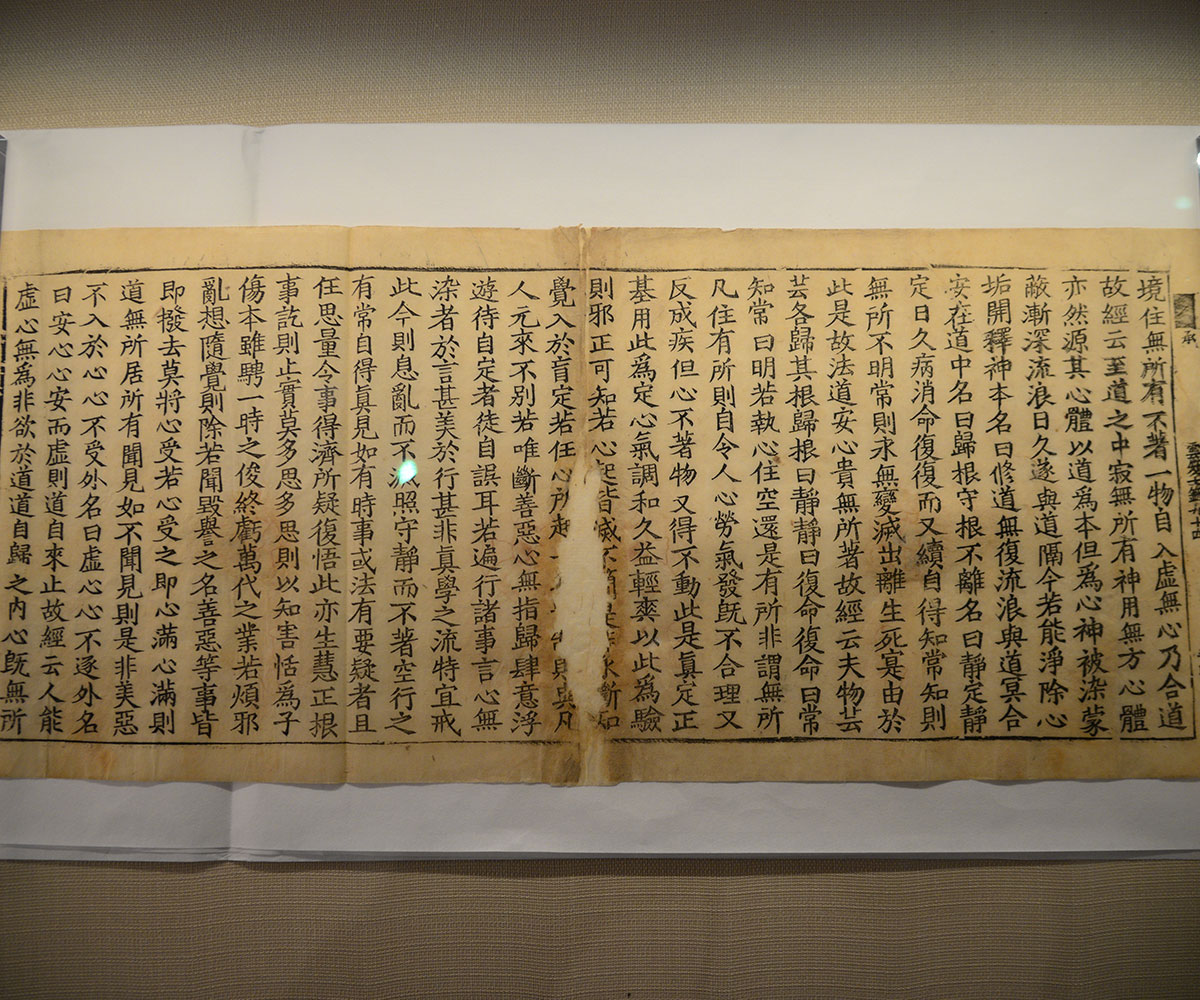 承
境住無所有不著一物自入虛無心乃合道
故經云至道之中寂無所有神用無方心體
亦然源其心體以道為本但為心神被染蒙
蔽漸深流浪日久遂與道隔今若能淨除心
垢開釋神本名曰修道無復流浪與道冥合
安在道中名曰歸根守根不離名曰靜定靜
定日久病消命復復而又續自得知常知則
無所不明常則永無變滅出離生死寔由於
此是故法道安心貴無所著故經云夫物芸
芸各歸其根歸根曰靜靜曰復命復命曰常
知常曰明若執心住空還是有所非謂無所
凡住有所則自令人心勞氣發旣不合理又
反成疾但心不著物又得不動此是真定正
基用此為定心氣調和久益輕爽以此為驗
則邪正可知若心起皆滅不簡是永斷知
覺入於盲定若任心所起一則與凡
人元來不別若唯斷善惡心無指歸肆意浮
遊待自定者徒自誤耳若遍行諸事言心無
染者於言甚美於行甚非真學之流特宜戒
此今則息亂而不滅照守靜而不著空行之
有常自得真見如有時事或法有要疑者且
任思量令事得濟所疑復悟此亦生慧正根
事訖則止實莫多思多思則以知害恬為子
傷本雖騁一時之俊終虧萬代之業若煩邪
亂想隨覺則除若聞毀譽之名善惡等事皆
即撥去莫將心受若心受之即心滿心滿則
道無所居所有聞見如不聞見則是非美惡
不入於心心不受外名曰虛心心不逐外名
曰安心心安而虛則道自來止故經云人能
虛心無為非欲於道道自歸之內心旣無所